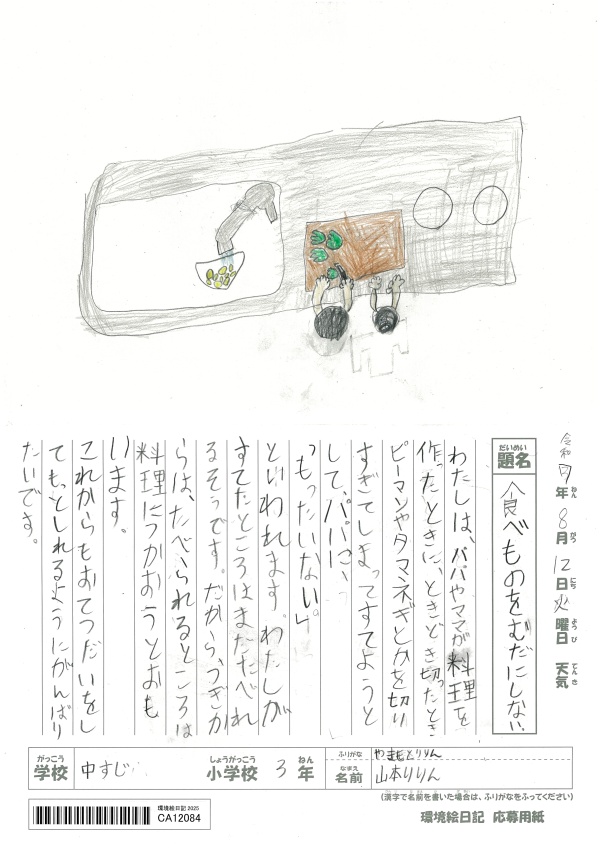 令和7年8月12日火曜日 天気
ねん がつ にち ようび てんき
だいめい
題名
食べものをむだにしない
わたしは、パパやママが料理を
作ったときに、ときどき切ったとき
ピーマンやタマネギとかを切り
すぎてしまってすてようと
して、パパに、
「もったいない。」
といわれます。わたしが
すてたところはまだたべれ
るそうです。だから、つぎか
らは、たべられるところは
料理につかおうとおも
います。
これからもおてつだいをし
てもっとしれるようにがんばり
たいです。
がっこう しょうがっこう ねん
学校 中すじ 小学校 3年
ふりがな やまもとりりん
なまえ
名前 山本りりん
(漢字で名前を書いた場合は、ふりがなをふってください)
環境絵日記2025
CA12084
環境絵日記 応募用紙